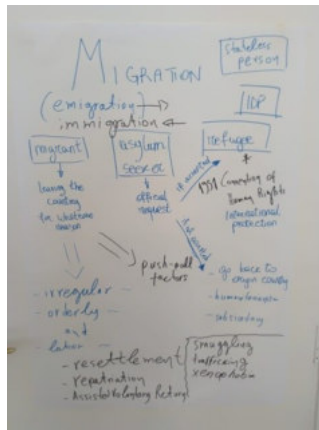 MIGRATION
stateless person
IDP
(emigration) →
immigration ←
migrant
asylum seeker
refugee
leaving the country for whatever reason
official request
if accepted
1951 Convention of Human Rights
International protection
if not accepted
push-pull factors
- go back to origin country
- humanitarian
- subsidiary
- irregular -
- orderly -
and
- labour -
- resettlement
- repatriation
- Assisted Voluntary Return
smuggling
trafficking
xenophobia